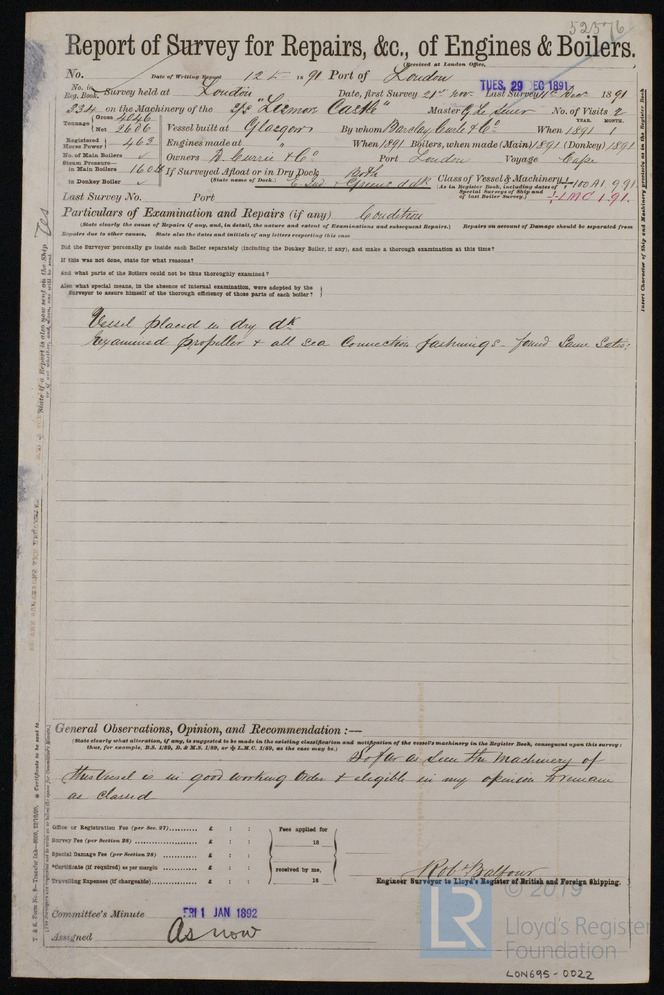 52576
Report of Survey for Repairs, &c., of Engines & Boilers.
(Received at London Office,
No. Date of Writing Report 12 1891 Port of London
TUES, 29 DEC 1891
No. in Reg. Book. Survey held at London Date, first Survey 21st Nov Last Survey Dec 1891
334 on the Machinery of the S/S "Lismore Castle" Master No. of Visits 2
Tonnage Gross 4046
Net 2606
Vessel built at Glasgow By whom Barclay Curle & Co When 1891
YEAR. MONTH.
Registered Horse Power 463 Engines made at " When 1891 Boilers, when made (Main) 1891 (Donkey) 1891
No. of Main Boilers ✓ Owners D. Currie & Co Port London Voyage Cape
Steam Pressure in Main Boilers 160 lb If Surveyed Afloat or in Dry Dock Both
(State name of Dock.)
in Donkey Boiler ✓
Class of Vessel & Machinery 100A1 9.91
(As in Register Book, including dates of Special Surveys of Ship and of last Boiler Survey.) LMC 1.91.
Last Survey No. Port
Particulars of Examination and Repairs (if any) Condition
(State clearly the cause of Repairs if any, and, in detail, the nature and extent of Examinations and subsequent Repairs.) Repairs on account of Damage should be separated from
Repairs due to other causes, State also the dates and initials of any letters respecting this case
Did the Surveyor personally go inside each Boiler separately (including the Donkey Boiler, if any), and make a thorough examination at this time?
If this was not done, state for what reasons?
And what parts of the Boilers could not be thus thoroughly examined?
Also what special means, in the absence of internal examination, were adopted by the
Surveyor to assure himself of the thorough efficiency of those parts of each boiler?
Vessel placed in dry dk
Examined propeller & all sea connection fastenings - found same satis:
General Observations, Opinion, and Recommendation :—
(State clearly what alteration, if any, is suggested to be made in the existing classification and notification of the vessel's machinery in the Register Book, consequent upon this survey:
thus, for example, B.S. 1/89, B. & M.S. 1/89, or L.M.C. 1/89, as the case may be.)
So far as seen the Machinery of
this vessel is in good working order & eligible in my opinion to remain
as classed
Office or Registration Fee (per Sec. 27) £ : :
Survey Fee (per Section 28) £ : :
Special Damage Fee (per Section 28) £ : :
*Certificate (if required) as per margin £ : :
Travelling Expenses (if chargeable) £ : :
Fees applied for
18
received by me,
18
Robt Balfour
Engineer Surveyor to Lloyd's Register of British and Foreign Shipping.
Committee's Minute FRI 1 JAN 1892
Assigned As now
© 2019
LR
Lloyd's Register
Foundation
LON695-0022